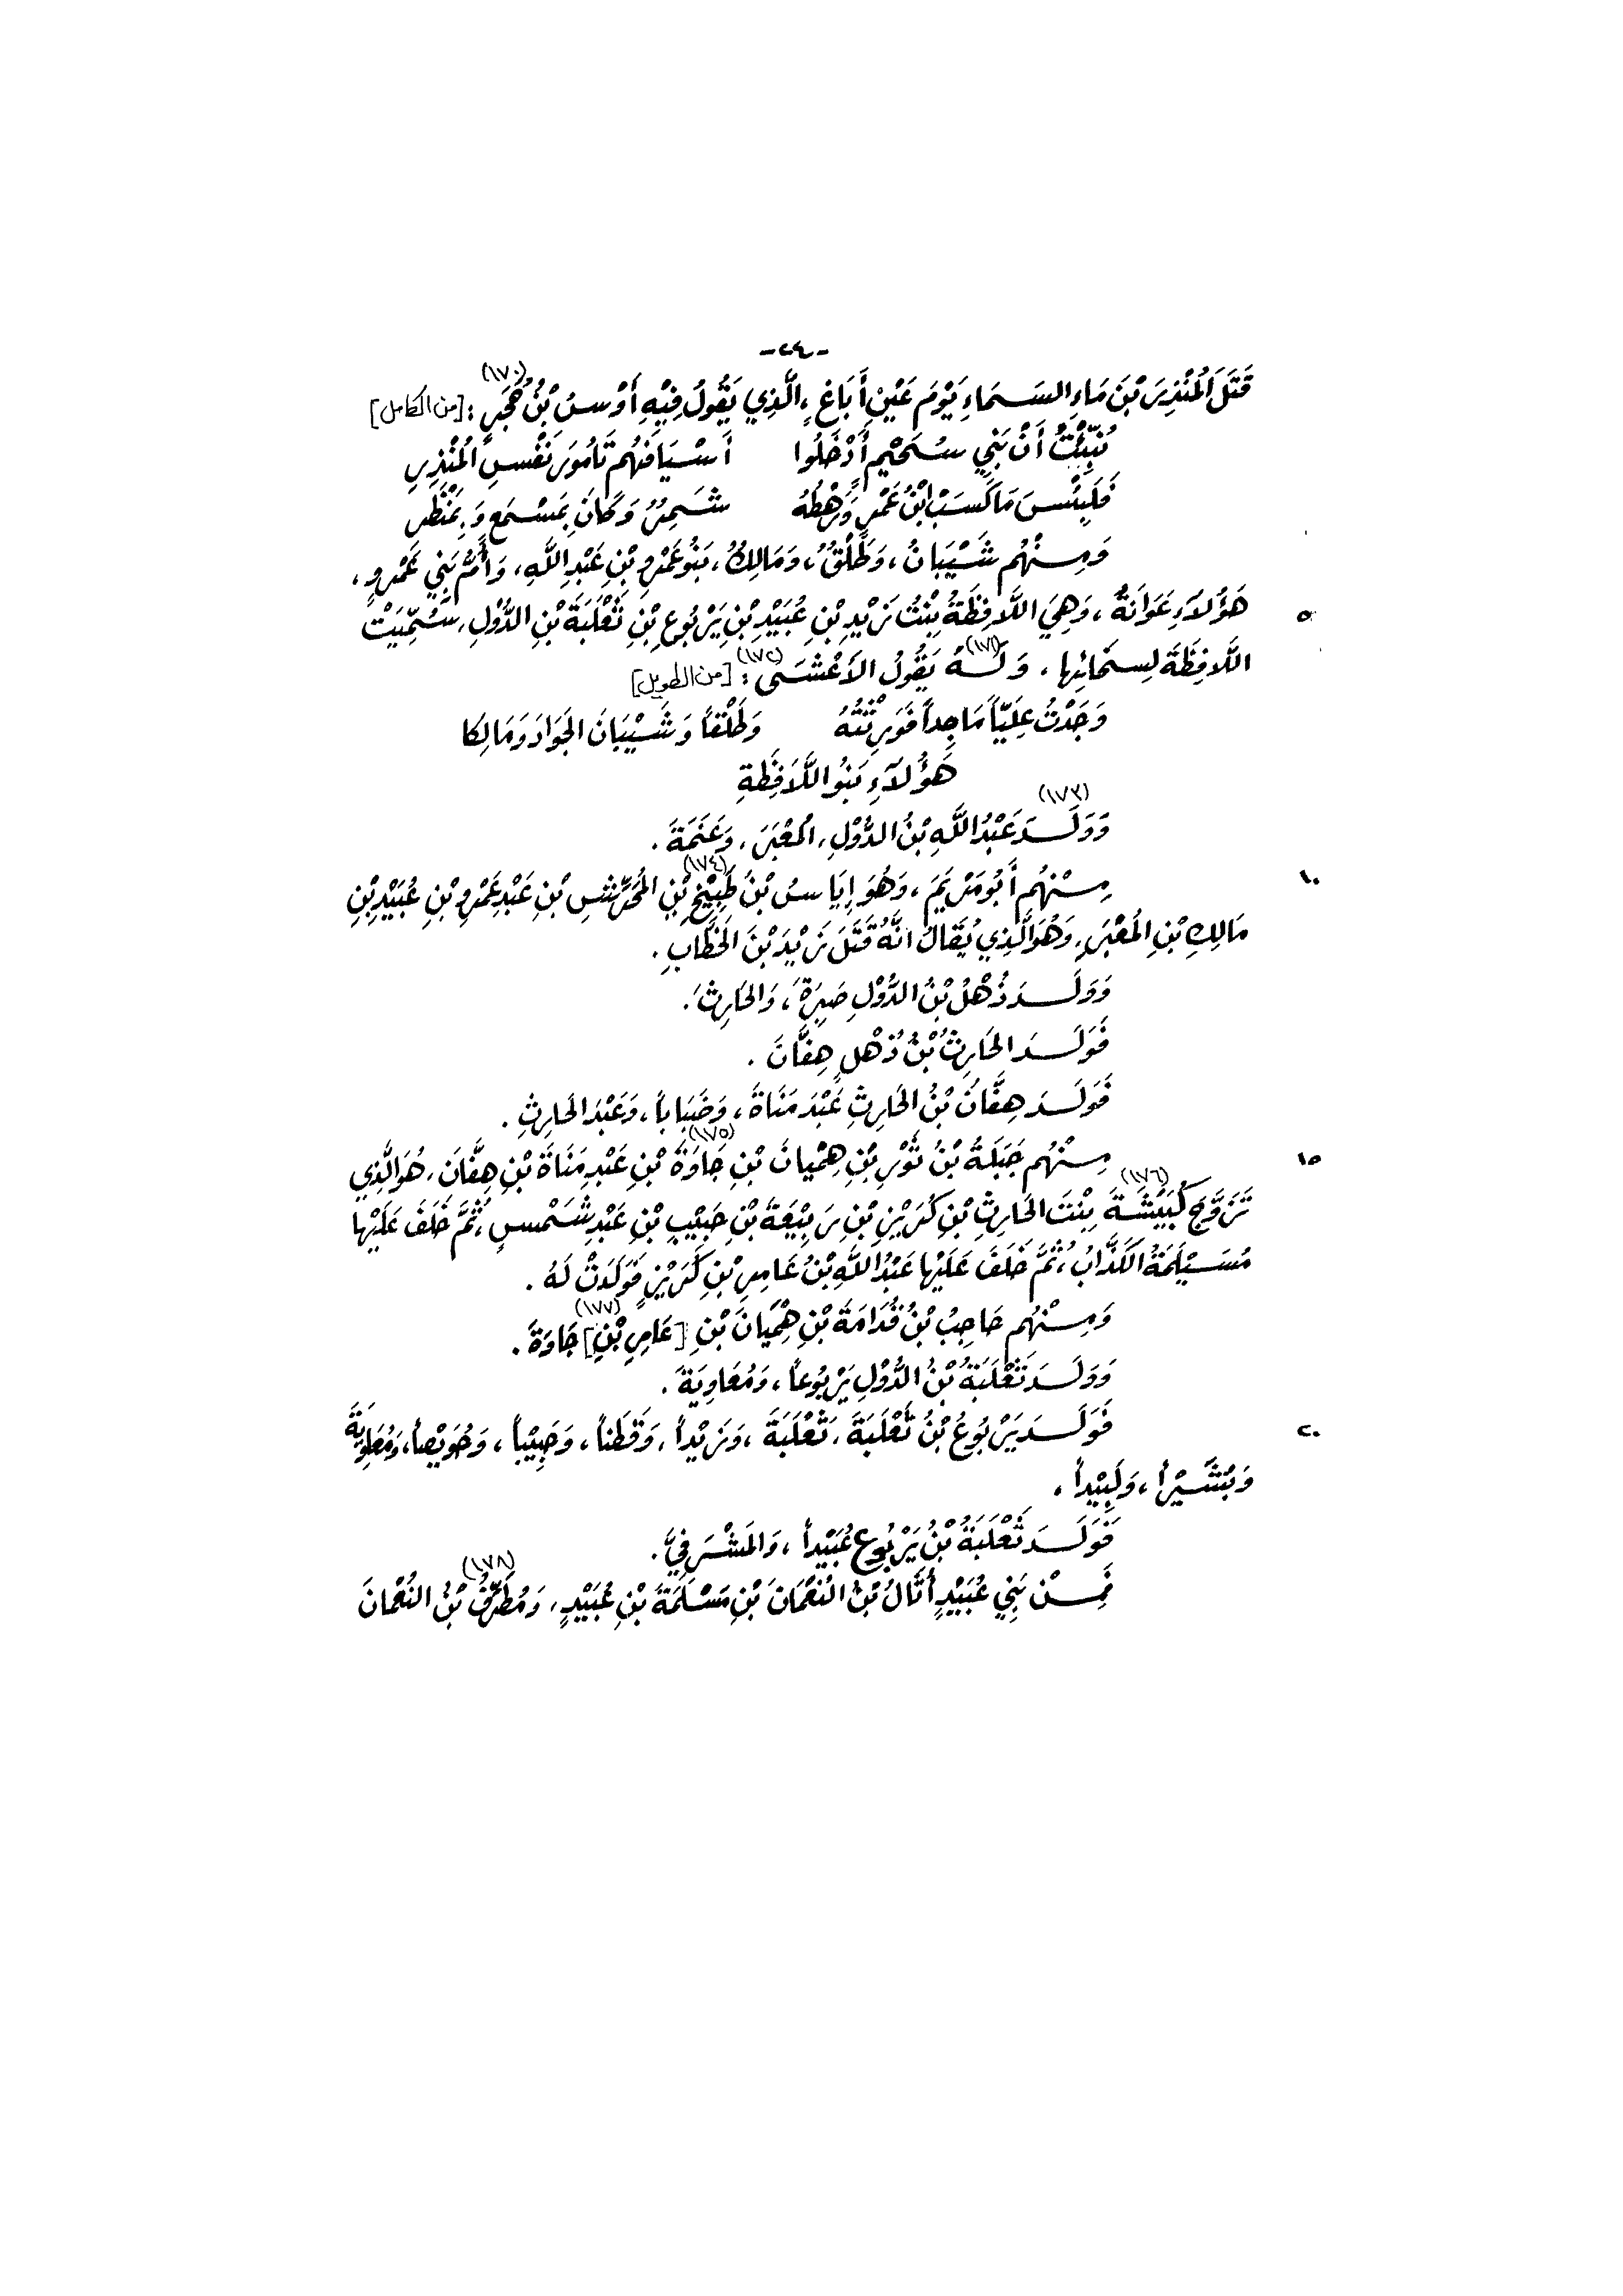 -٢٤-
قَتَلَ الْمُنْذِرَ بْنَ مَاءِ السَمَاءِ يَوْمَ عَيْنِ أَبَاغٍ، الَّذِي يَقُولُ فِيْهِ أَوْسُ بْنُ حُجَرٍ (١٧٠): [من الكامل]
نُبِّئْتُ أَنْ بَنِي سُحَيْمٍ أَدْخَلُوا أَسْيَافَهُم تَامُورَ نَفْسِ الْمُنْذِرِ
فَلَبِئْسَ مَا كَسَبَ ابْنُ عَمْرٍ وَرَهْطُهُ شَمِرٌ وَكَانَ بِمَسْمَعٍ وَبِمَنْظَرِ
وَمِنْهُم شَيْبَانُ، وَطَلْقٌ، وَمَالِكٌ، بَنُو عَمْرِو بْنِ عَبْدِ اللَّهِ، وَأُمُّ بَنِي عَمْرٍو،
٥ هَؤُلَاءِ عَوَانَةُ، وَهِيَ اللَّافِظَةُ بِنْتُ زَيْدِ بْنِ عُبَيْدِ بْنِ يَرْبُوعِ بْنِ ثَعْلَبَةَ بْنِ الدُّوْلِ، سُمِّيَتْ
اللَّافِظَةَ لِسخَائِها، وَلَهُ (١٧١) يَقُولُ الأَعْشَى (١٧٢): [من الطويل]
وَجَدْتُ عَلِيّاً مَاجِداً فَوَرِثْتُهُ وَطَلْقاً وَشَيْبَانَ الجَوَادَ وَمَالِكا
هَؤُلَاءِ بَنُو اللَّافِظَةِ
وَوَلَدَ (١٧٣) عَبْدُ اللَّهِ بْنُ الدُّوْلِ، الْمُعْبَرَ، وَعَنَمَةَ.
١٠ مِنْهُم أَبُو مَرْيَمَ، وَهُوَ إِيَاسُ بْنُ طَبِيْخِ (١٧٤) بْنِ الْمُحَرِّشِ بْنِ عَبْدِ عَمْرِو بْنِ عُبَيْدِ بْنِ
مَالِكِ بْنِ الْمُعْبَرِ، وَهُوَ الَّذِي يُقَالُ انَّهُ قَتَلَ زَيْدَ بْنَ الخَطَّابِ.
وَوَلَدَ ذُهْلُ بْنُ الدُّوْلِ صَبِرَةَ، وَالحَارِثَ.
فَوَلَدَ الحَارِثُ بْنُ ذُهْلٍ هِفَّانَ.
فَوَلَدَ هِفَّانُ بْنُ الحَارِثِ عَبْدَ مَنَاةَ، وَضَبَاباً، وَعَبْدَ الحَارِثِ.
١٥ مِنْهُم جَبَلَةُ بْنُ ثَوْرِ بْنِ هِمْيانَ بْنِ جَاوَةَ (١٧٥) بْنِ عَبْدِ مَنَاةَ بْنِ هِفَّانَ، هُوَ الَّذِي
تَزَوَّجَ كُبَيْشَةَ (١٧٦) بِنْتَ الحَارِثِ بْنِ كُرَيْزِ بْنِ رَبِيْعَةَ بْنِ حَبِيْبِ بْنِ عَبْدِ شَمْسٍ، ثُمَّ خَلَفَ عَلَيْها
مُسَيْلَمَةُ الكَذَّابُ، ثُمَّ خَلَفَ عَلَيْها عَبْدُ اللَّهِ بْنُ عَامِرِ بْنِ كُرَيْزٍ فَوَلَدَتْ لَهُ.
وَمِنْهُم حَاجِبُ بْنُ قُدَامَةَ بْنِ هِمْيَانَ بْنِ [عَامِرِ بْنِ] (١٧٧) جَاوَةَ.
وَوَلَدَ ثَعْلَبَةُ بْنُ الدُّوْلِ يَرْبُوعاً، وَمُعَاوِيَةَ.
٢٠ فَوَلَدَ يَرْبُوعُ بْنُ ثَعْلَبَةَ، ثَعْلَبَةَ، وَزَيْداً، وَقَطَناً، وَحَبِيْباً، وَحُوَيْصاً، وَمُعَاوِيَةَ
وَبُشَيْراً، وَلَبِيْداً،
فَوَلَدَ ثَعْلَبَةُ بْنُ يَرْبُوعٍ عُبَيْداً، وَالمَشْرَفِيَّ.
فَمِنْ بَنِي عُبَيْدٍ أُثَالُ بْنُ النُعْمَانَ بْنِ مَسْلَمَةَ بْنِ عُبَيْدٍ، وَمُطَرِّفُ (١٧٨) بْنُ النُعْمَانَ